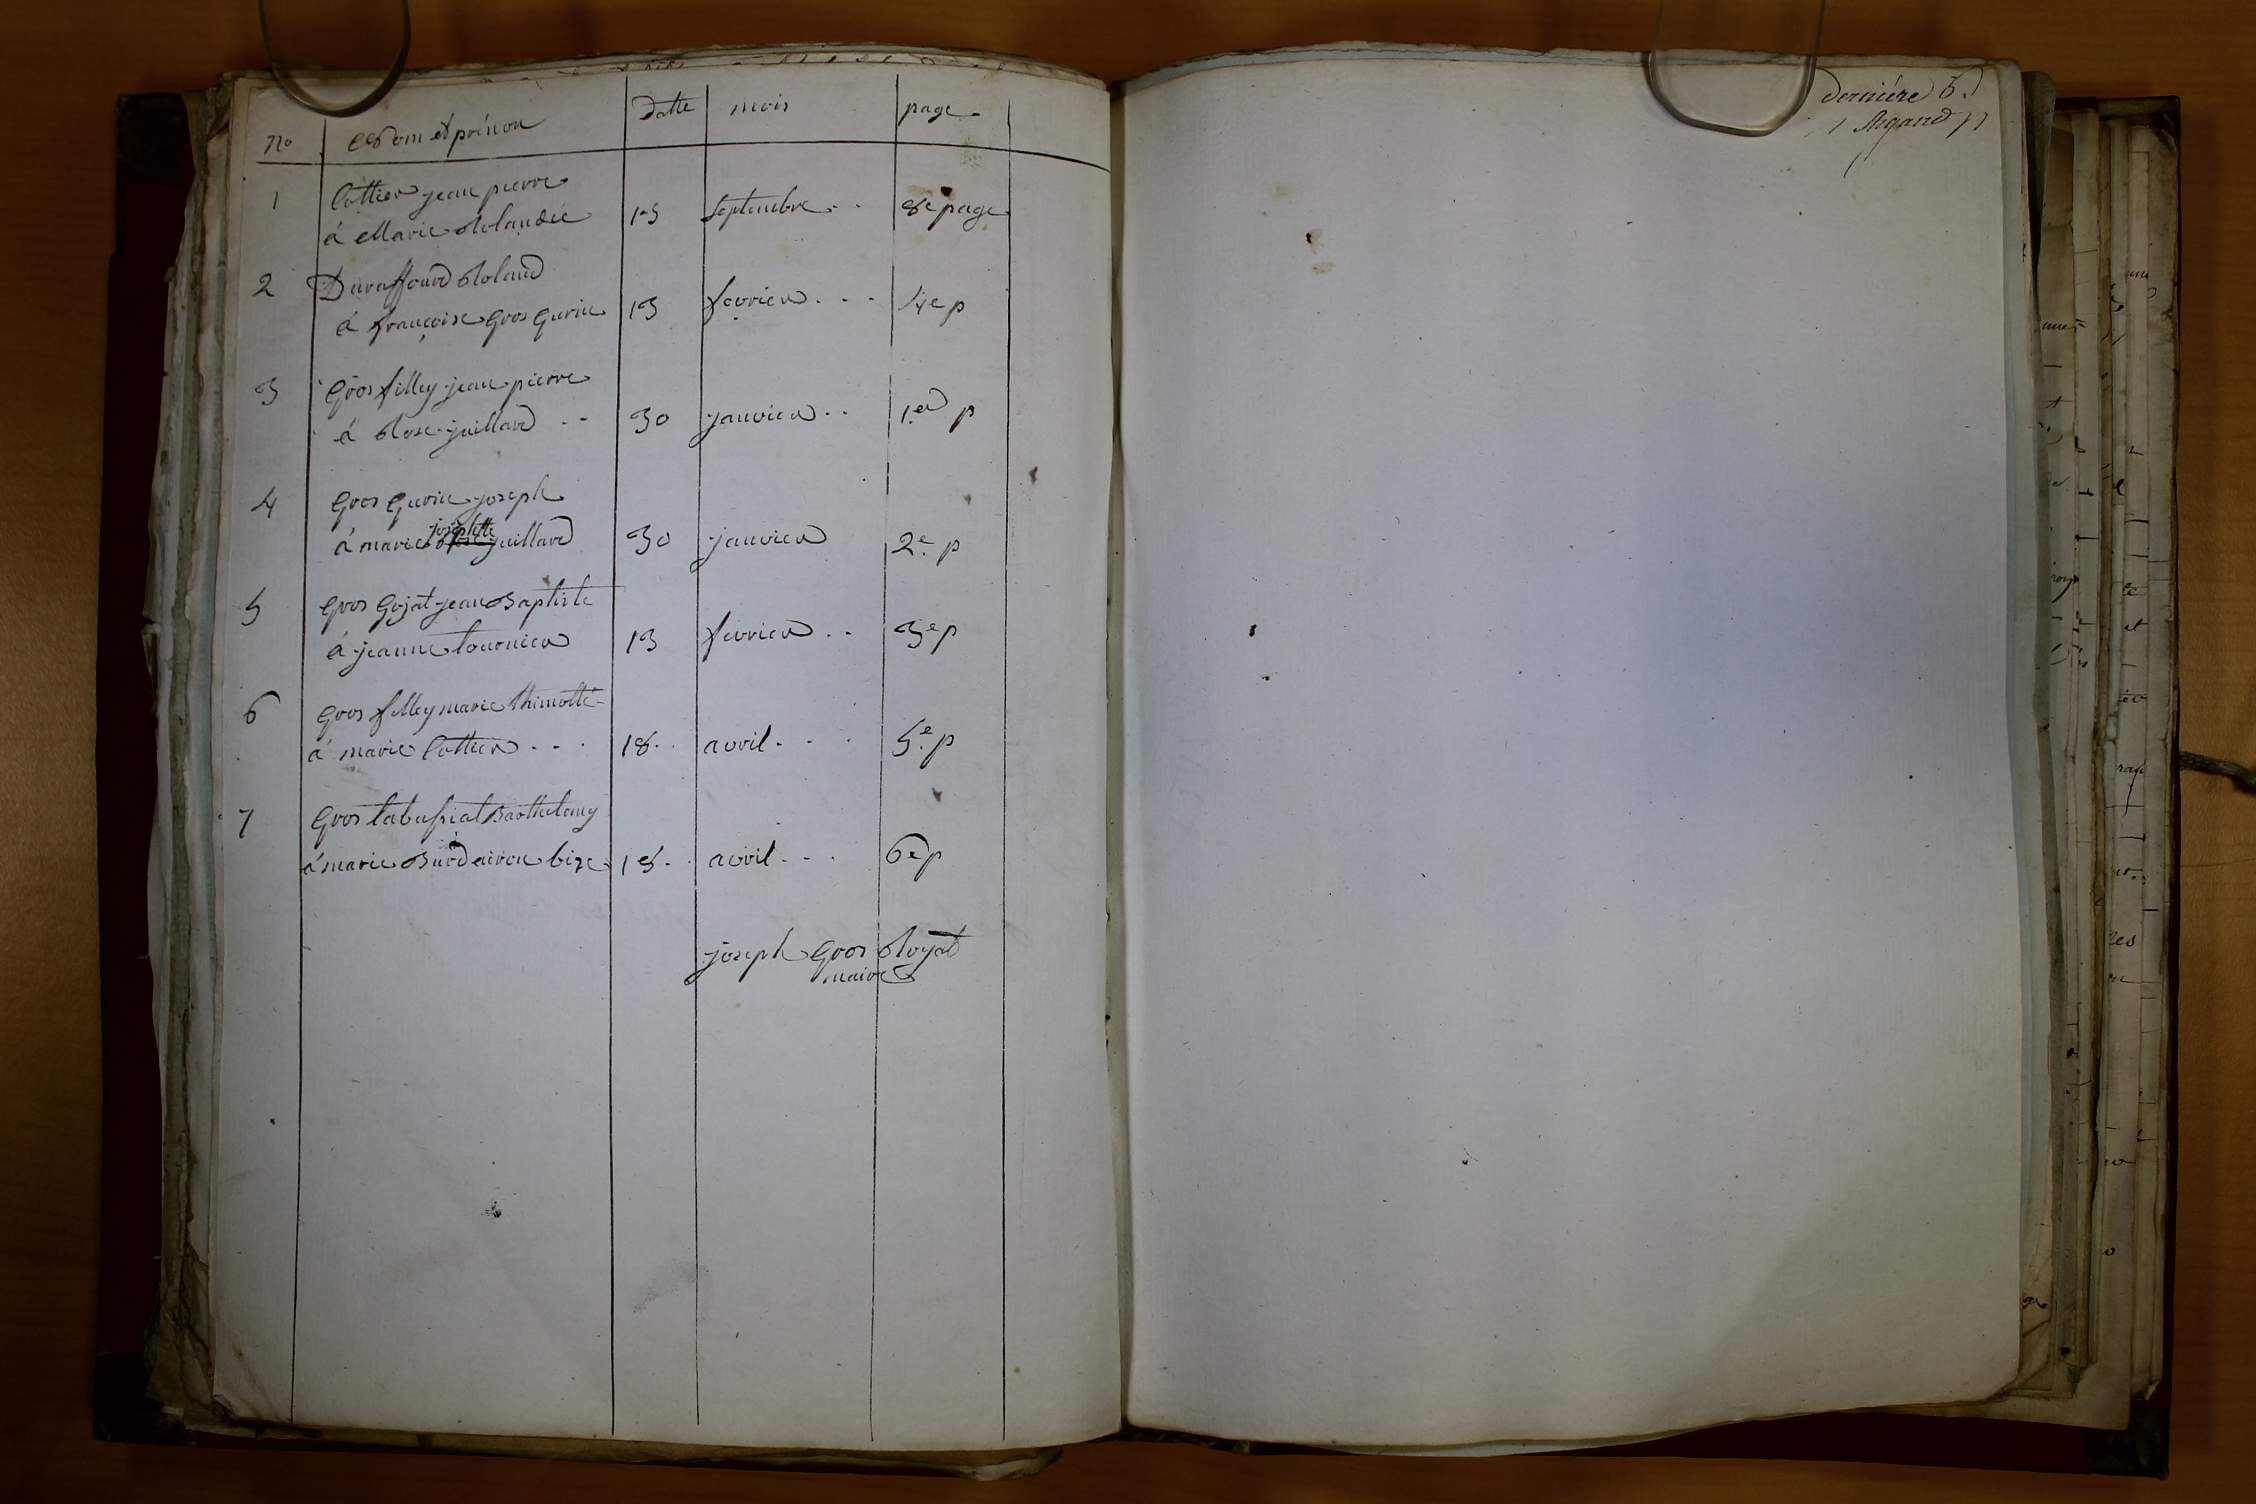 No Nom et prénon Datte mois page
1 Cottier jean pierre
à Marie Rolandée 15 septembre .. 8e page
2 Duraffourd Roland
à françoise Gros Gurin 13 fevrier ... 4e p
3 Gros filley jean pierre
à Rose juillard .. 30 janvier .. 1er p
4 Gros Gurin joseph
josephette
à marie juillard 30 janvier 2e p
5 Gros Gojat jean Baptiste
à jeanne Tournier 13 fevrier .. 3e p
6 Gros filley marie thimotté
à marie Cottier ... 18 .. avril ... 5e p
7 Gros tabussiat Barthelemy
à marie Burdeiron bize 18 .. avril ... 6e p
joseph Gros Royat
maire
dernière